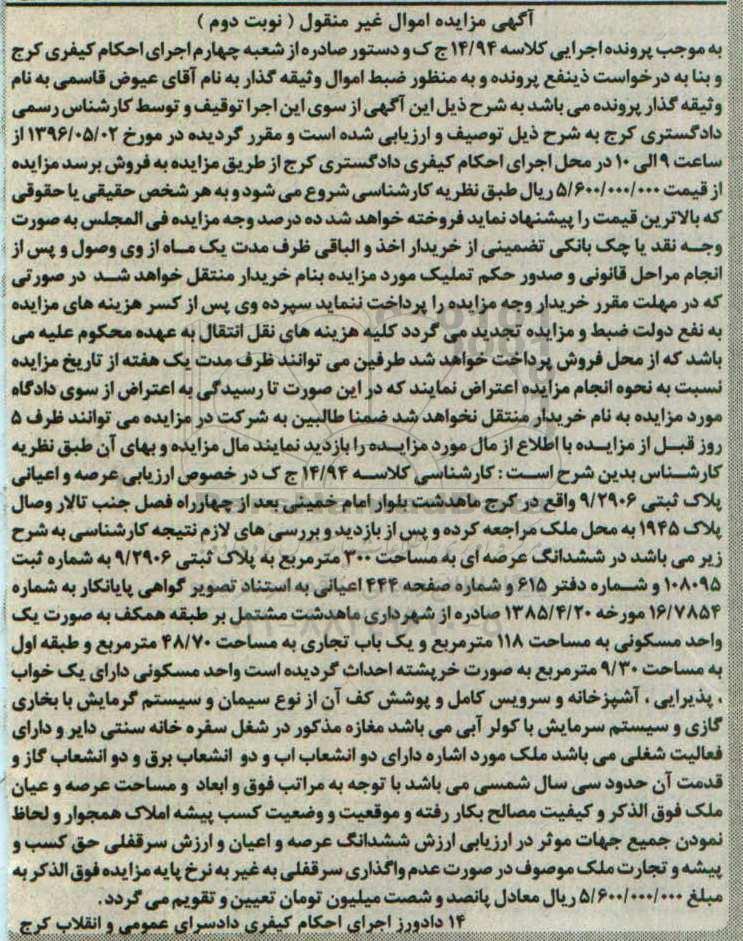 آگهی مزایده اموال غیر منقول ( نوبت دوم )
به موجب پرونده اجرایی کلاسه ۱۴/۹۴ ج ک و دستور صادره از شعبه چهارم اجرای احکام کیفری کرج
و بنا به درخواست ذینفع پرونده و به منظور ضبط اموال وثیقه گذار به نام آقای عیوض قاسمی به نام
وثیقه گذار پرونده می باشد به شرح ذیل این آگهی از سوی این اجرا توقیف و توسط کارشناس رسمی
دادگستری کرج به شرح ذیل توصیف و ارزیابی شده است و مقرر گردیده در مورخ ۱۳۹۶/۰۵/۰۲ از
ساعت ۹ الی ۱۰ در محل اجرای احکام کیفری دادگستری کرج از طریق مزایده به فروش برسد مزایده
از قیمت ۵/۶۰۰/۰۰۰/۰۰۰ ریال طبق نظریه کارشناسی شروع می شود و به هر شخص حقیقی یا حقوقی
که بالاترین قیمت را پیشنهاد نماید فروخته خواهد شد ده درصد وجه مزایده فی المجلس به صورت
وجه نقد یا چک بانکی تضمینی از خریدار اخذ و الباقی ظرف مدت یک ماه از وی وصول و پس از
انجام مراحل قانونی و صدور حکم تملیک مورد مزایده بنام خریدار منتقل خواهد شد در صورتی
که در مهلت مقرر خریدار وجه مزایده را پرداخت ننماید سپرده وی پس از کسر هزینه های مزایده
به نفع دولت ضبط و مزایده تجدید می گردد کلیه هزینه های نقل انتقال به عهده محکوم علیه می
باشد که از محل فروش پرداخت خواهد شد طرفین می توانند ظرف مدت یک هفته از تاریخ مزایده
نسبت به نحوه انجام مزایده اعتراض نمایند که در این صورت تا رسیدگی به اعتراض از سوی دادگاه
مورد مزایده به نام خریدار منتقل نخواهد شد ضمنا طالبین به شرکت در مزایده می توانند ظرف ۵
روز قبل از مزایده با اطلاع از مال مورد مزایده را بازدید نمایند مال مزایده و بهای آن طبق نظریه
کارشناس بدین شرح است : کارشناسی کلاسه ۱۴/۹۴ ج ک در خصوص ارزیابی عرصه و اعیانی
پلاک ثبتی ۹/۲۹۰۶ واقع در کرج ماهدشت بلوار امام خمینی بعد از چهارراه فصل جنب تالار وصال
پلاک ۱۹۴۵ به محل ملک مراجعه کرده و پس از بازدید و بررسی های لازم نتیجه کارشناسی به شرح
زیر می باشد در ششدانگ عرصه ای به مساحت ۳۰۰ مترمربع به پلاک ثبتی ۹/۲۹۰۶ به شماره ثبت
۱۰۸۰۹۵ و شماره دفتر ۶۱۵ و شماره صفحه ۴۴۴ اعیانی به استناد تصویر گواهی پایانکار به شماره
۱۶/۷۸۵۴ مورخه ۱۳۸۵/۴/۲۰ صادره از شهرداری ماهدشت مشتمل بر طبقه همکف به صورت یک
واحد مسکونی به مساحت ۱۱۸ مترمربع و یک باب تجاری به مساحت ۴۸/۷۰ مترمربع و طبقه اول
به مساحت ۹/۳۰ مترمربع به صورت خرپشته احداث گردیده است واحد مسکونی دارای یک خواب
، پذیرایی ، آشپزخانه و سرویس کامل و پوشش کف آن از نوع سیمان و سیستم گرمایش با بخاری
گازی و سیستم سرمایش با کولر آبی می باشد مغازه مذکور در شغل سفره خانه سنتی دایر و دارای
فعالیت شغلی می باشد ملک مورد اشاره دارای دو انشعاب اب و دو انشعاب برق و دو انشعاب گاز و
قدمت آن حدود سی سال شمسی می باشد با توجه به مراتب فوق و ابعاد و مساحت عرصه و عیان
ملک فوق الذکر و کیفیت مصالح بکار رفته و موقعیت و وضعیت کسب پیشه املاک همجوار و لحاظ
نمودن جمیع جهات موثر در ارزیابی ارزش ششدانگ عرصه و اعیان و ارزش سرقفلی حق کسب و
پیشه و تجارت ملک موصوف در صورت عدم واگذاری سرقفلی به غیر به نرخ پایه مزایده فوق الذکر به
مبلغ ۵/۶۰۰/۰۰۰/۰۰۰ ریال معادل پانصد و شصت میلیون تومان تعیین و تقویم می گردد.
۱۴ دادورز اجرای احکام کیفری دادسرای عمومی و انقلاب کرج